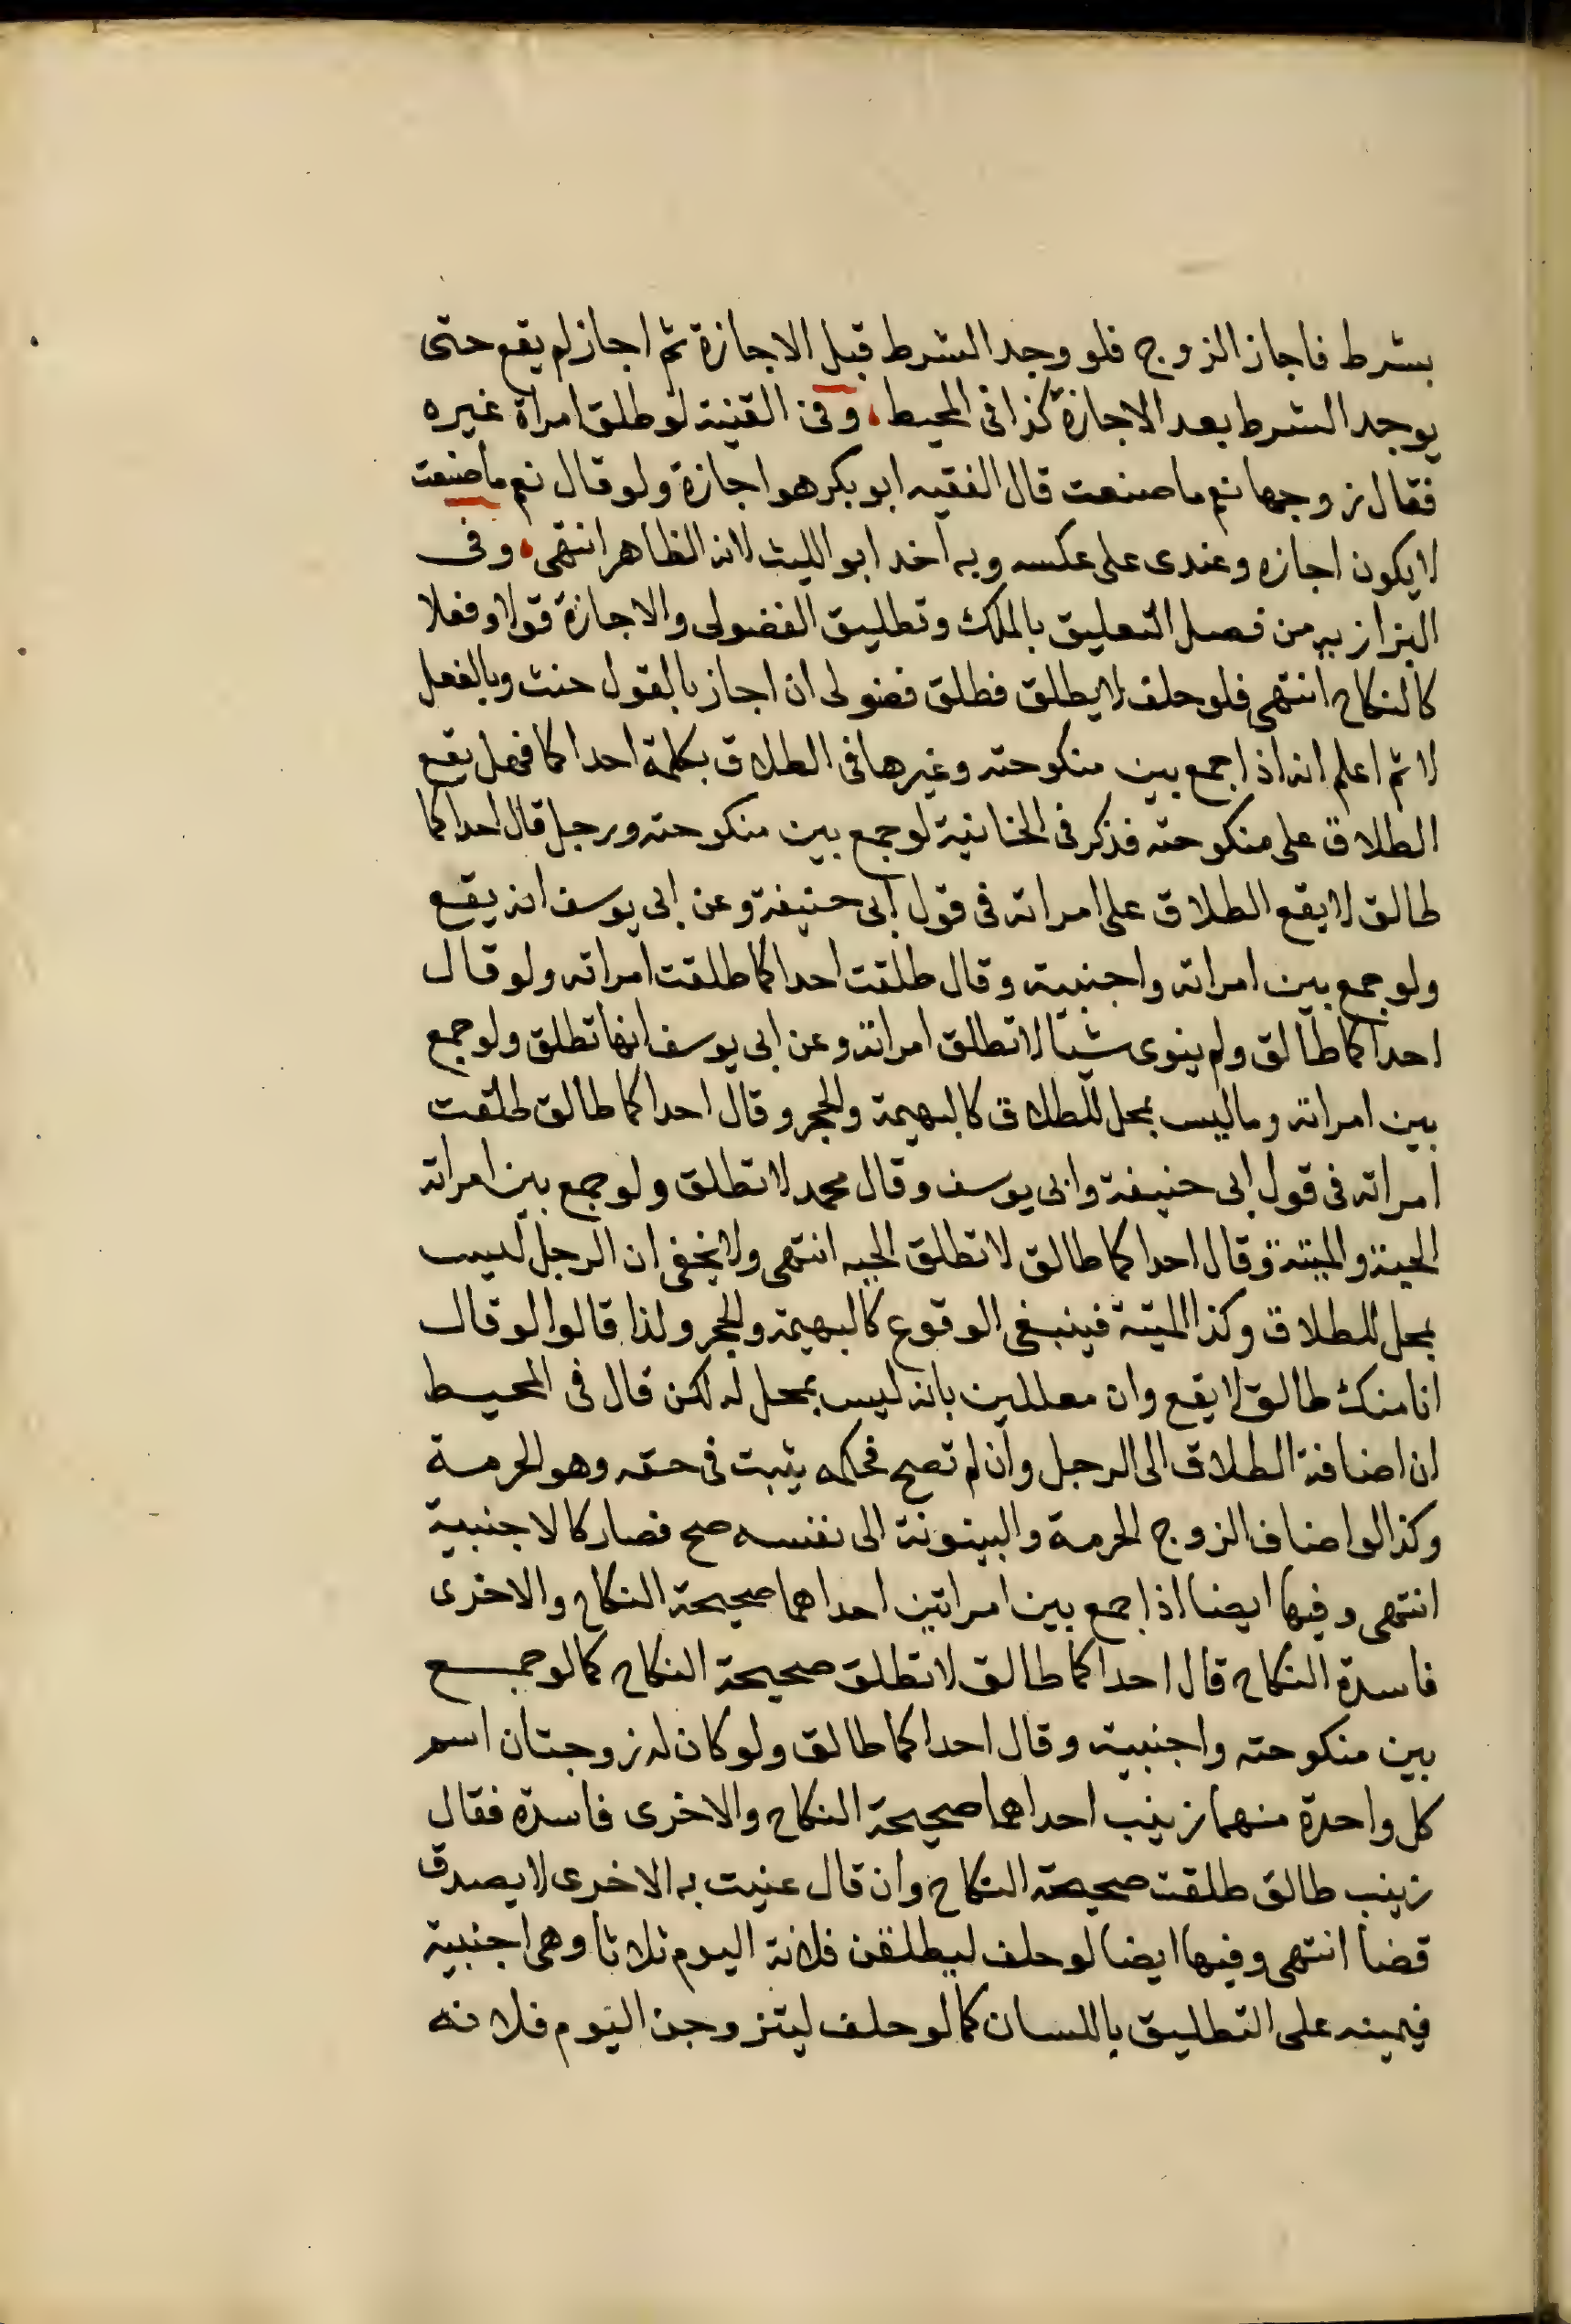 بشرط فاجاز الزوج فلو وجد الشرط قبل الاجازة ثم اجاز لم يقع حتى
يوجد الشرط بعد الاجازة كذا فى المحيط، وفى القنية لو طلق امراة غيره
فقال زوجها نعم ما صنعت قال الفقيه ابو بكر هو اجازة ولو قال نعم ما صنعت
لا يكون اجازه وعندى على عكسه وبه اخد ابو الليث لانه الظاهر انتهى، وفى
البزازيه من فصل التعليق بالملك وتطليق الفضولى والاجازة قولا وفعلا
كالنكاح انتهى فلو حلف لا يطلق فطلق فضولى ان اجاز بالقول حنث وبالفعل
لا ثم اعلم انه اذا جمع بين منكوحته وغيرها فى الطلاق بكلمة احداكما فهل يقع
الطلاق على منكوحته فذكر فى الخانية لو جمع بين منكوحته ورجل قال احداكما
طالق لا يقع الطلاق على امراته فى قول ابى حنيفة وعن ابى يوسف انه يقع
ولو جمع بين امراته واجنبية وقال طلقت احداكما طلقت امراته ولو قال
احداكما طالق ولم ينوى شيئا لا تطلق امراته وعن ابى يوسف انها تطلق ولو جمع
بين امراته وما ليس بمحل للطلاق كالبهيمة والحجر وقال احداكما طالق طلقت
امراته فى قول ابى حنيفة وابى يوسف وقال محمد لا تطلق ولو جمع بين امراته
الحية والميتة وقال احداكما طالق لا تطلق الحيه انتهى ولا يخفى ان الرجل ليس
بمحل للطلاق وكذا الميتة فينبغى الوقوع كالبهيمة والحجر ولذا قالوا لو قال
انا منك طالق لا يقع وان معللين بانه ليس بمحل له لكن قال فى المحيط
ان اضافة الطلاق الى الرجل وان لم تصح فحكمه يثبت فى حقه وهو الحرمة
وكذا لو اضاف الزوج الحرمة والبينونة الى نفسه صح فصار كالاجنبية
انتهى وفيها ايضا اذا جمع بين امراتين احداهما صحيحة النكاح والاخرى
فاسدة النكاح قال احداكما طالق لا تطلق صحيحة النكاح كما لو جمع
بين منكوحته واجنبية وقال احداكما طالق ولو كان له زوجتان اسم
كل واحدة منهما زينب احداهما صحيحة النكاح والاخرى فاسدة فقال
زينب طالق طلقت صحيحة النكاح وان قال عنيت به الاخرى لا يصدق
قضا انتهى وفيها ايضا لو حلف ليطلقن فلانة اليوم ثلاثا وهى اجنبية
فيمينه على التطليق باللسان كما لو حلف ليتزوجن اليوم فلانه